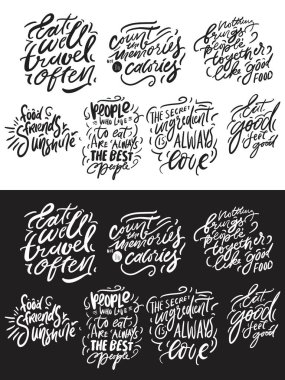 Eat
well
travel
often.
Count
the
memories
not
calories
Nothing
brings
people
together
like good
FOOD
food
friends
sunshine
PEOPLE
WHO LOVE
to eat
ARE ALWAYS
THE BEST
people
THE SECRET
ingredient
IS ALWAYS
love
Eat
good
feel
good
Eat
well
travel
often.
Count
the
memories
not
calories
Nothing
brings
people
together
like good
FOOD
food
friends
sunshine
PEOPLE
WHO LOVE
to eat
ARE ALWAYS
THE BEST
people
THE SECRET
ingredient
IS ALWAYS
love
Eat
good
feel
good